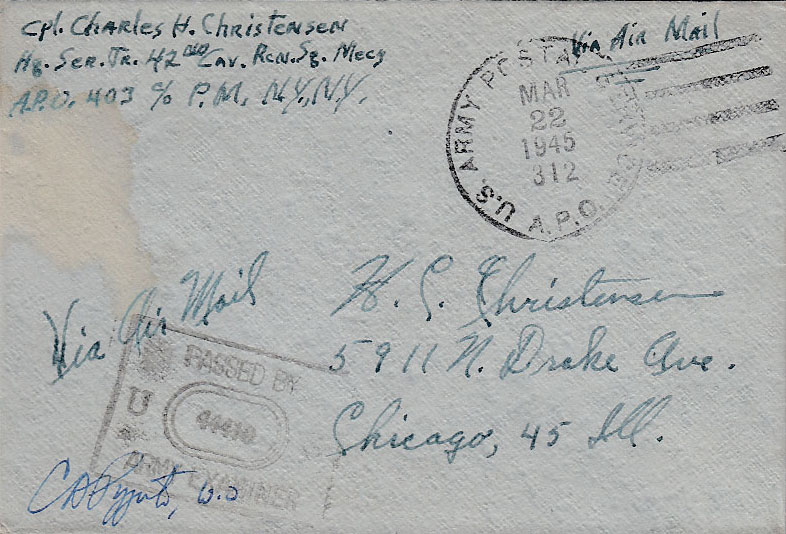 Cpl. Charles H. Christensen
Hq. Ser. Tr. 42ND Cav. Rcn. Sq. Mecz
A.P.O. 403 c/o P.M. N.Y., N.Y.
Via Air Mail
U.S. ARMY POSTAL SERVICE A.P.O.
MAR
22
1945
312
Via Air Mail
H. C. Christensen
5911 N. Drake Ave.
Chicago, 45 Ill.
PASSED BY
U
ARMY EXAMINER